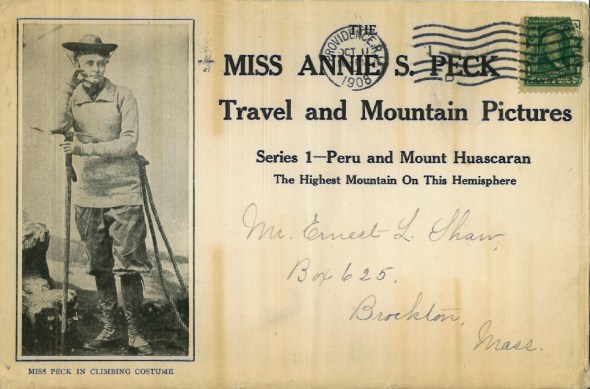 THE
MISS ANNIE S. PECK
Travel and Mountain Pictures
Series 1—Peru and Mount Huascaran
The Highest Mountain On This Hemisphere
PROVIDENCE, R.I.
OCT 11
1908
Mr. Ernest L. Shaw,
Box 625,
Brockton,
Mass.
MISS PECK IN CLIMBING COSTUME